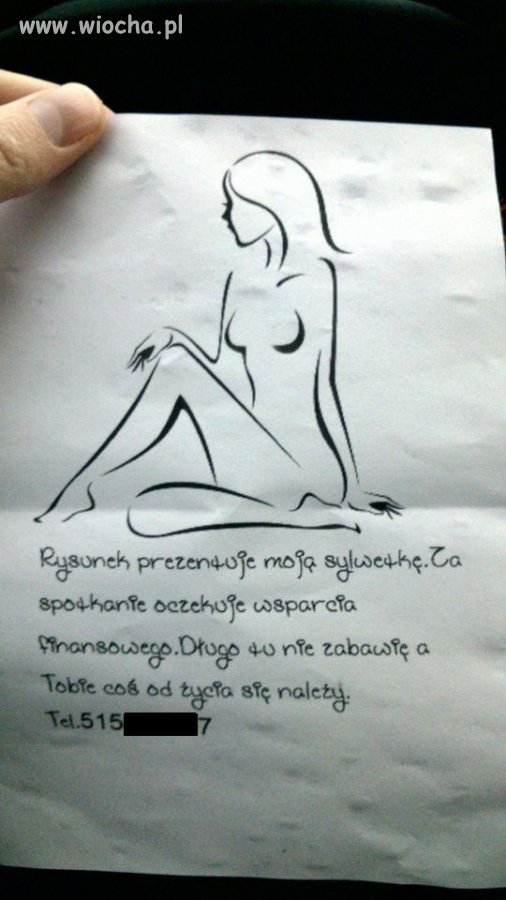 www.wiocha.pl
Rysunek prezentuje moją sylwetkę.Za
spotkanie oczekuje wsparcia
finansowego.Długo tu nie zabawię a
Tobie coś od życia się należy.
Tel.515 7